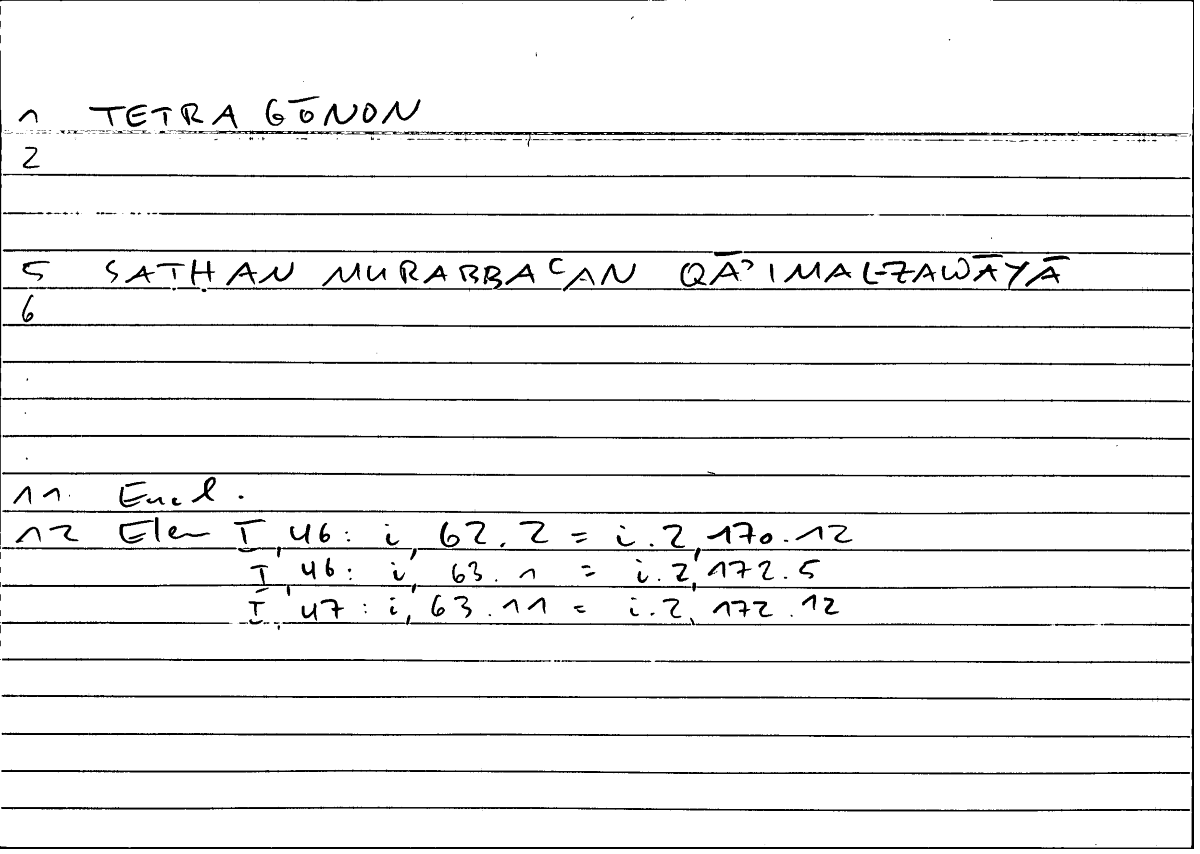 1 TETRAGŌNON
2
5 SAṬḤAN MURABBAʿAN QĀʾIM AL-ZAWĀYĀ
6
11 Eucl.
12 Elem I, 46: i, 62.2 = i.2, 170.12
I, 46: i, 63.1 = i.2, 172.5
I, 47: i, 63.11 = i.2, 172.12